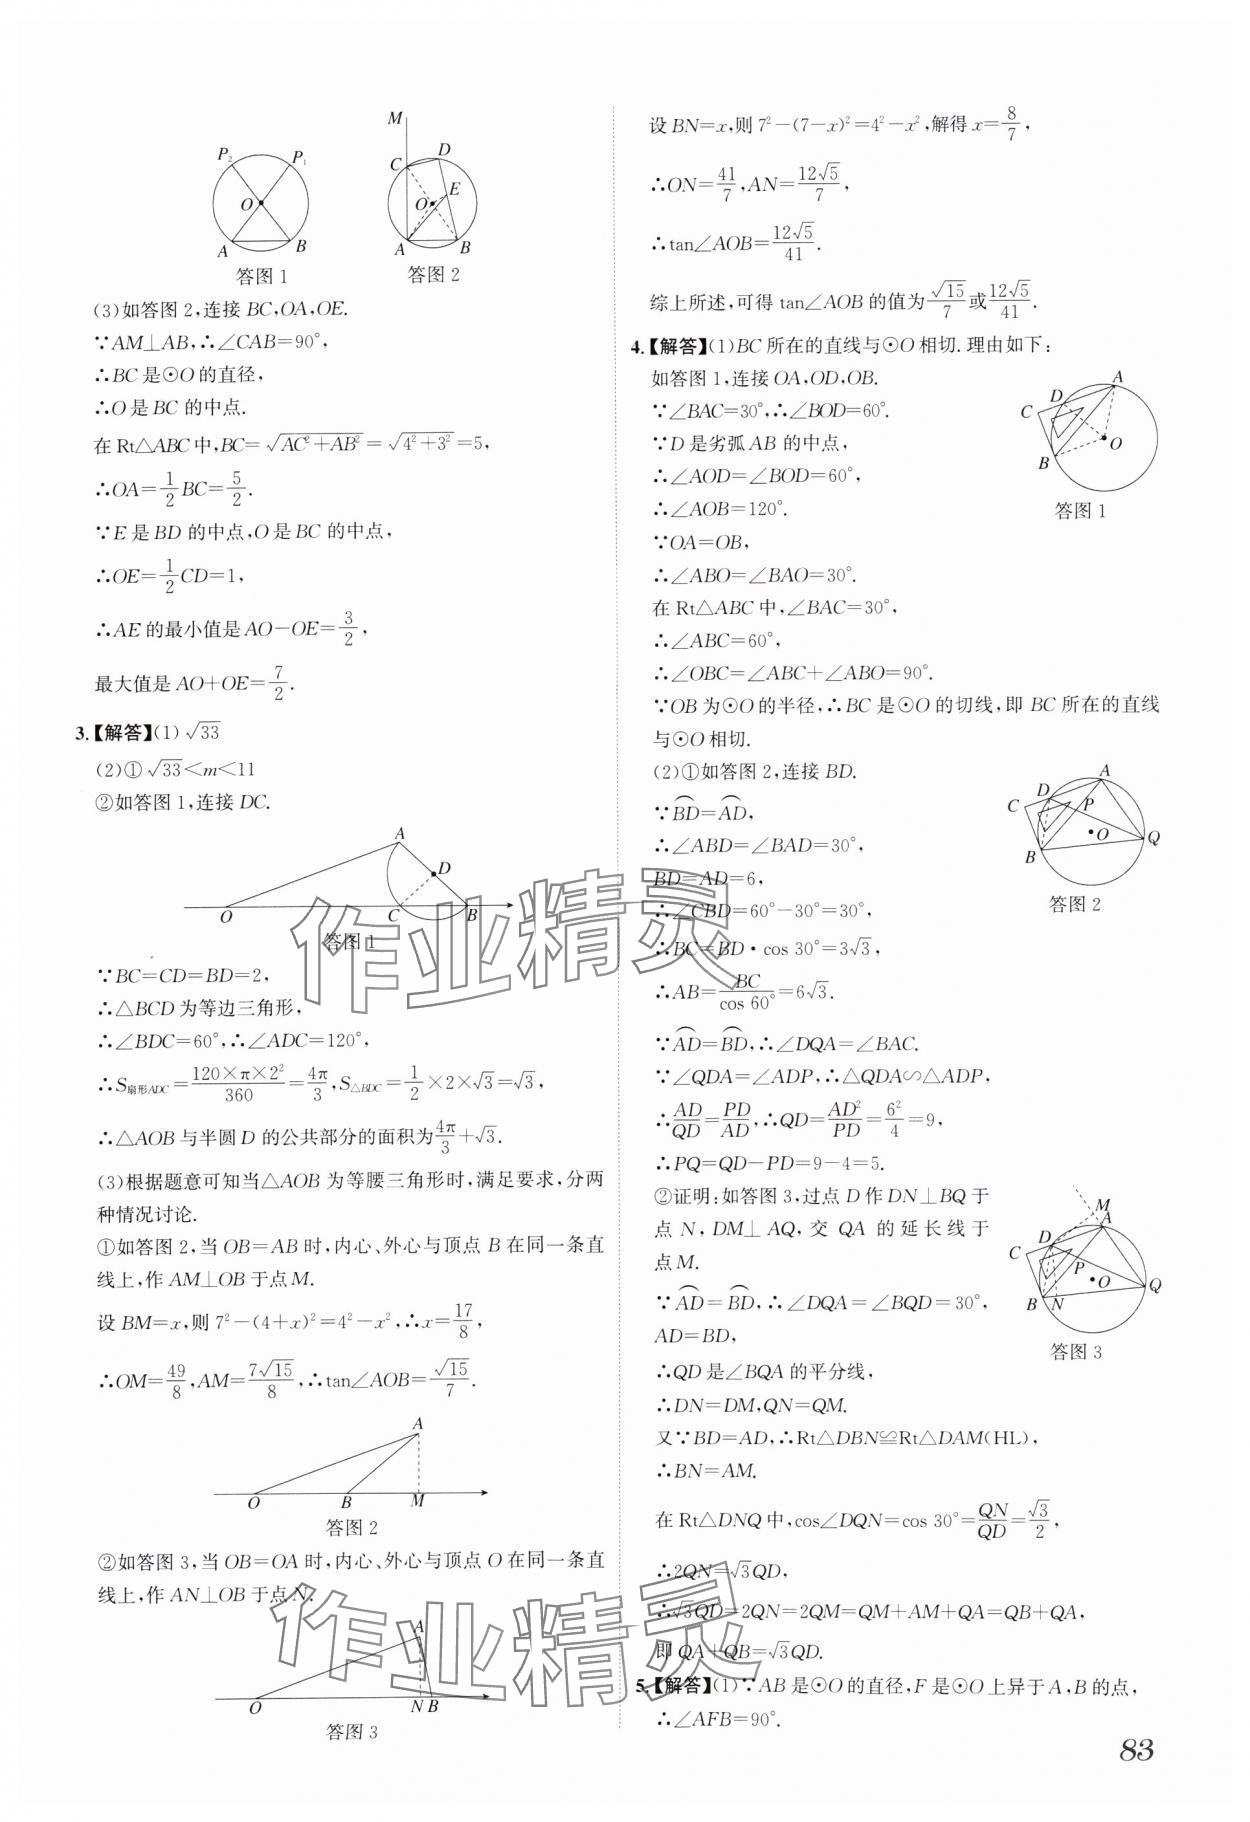 P₂ P₁ O A B
答图1
M C D E O A B
答图2
(3)如答图2,连接BC,OA,OE.
∵AM⊥AB,∴∠CAB=90°,
∴BC是⊙O的直径,
∴O是BC的中点.
在Rt△ABC中,BC=√(AC²+AB²)=√(4²+3²)=5,
∴OA=1/2BC=5/2.
∵E是BD的中点,O是BC的中点,
∴OE=1/2CD=1,
∴AE的最小值是AO-OE=3/2,
最大值是AO+OE=7/2.
3.【解答】(1)√33
(2)①√33<m<11
②如答图1,连接DC.
A D O C B
答图1
∵BC=CD=BD=2,
∴△BCD为等边三角形,
∴∠BDC=60°,∴∠ADC=120°,
∴S扇形ADC=120×π×2²/360=4π/3,S△BDC=1/2×2×√3=√3,
∴△AOB与半圆D的公共部分的面积为4π/3+√3.
(3)根据题意可知当△AOB为等腰三角形时,满足要求,分两
种情况讨论.
①如答图2,当OB=AB时,内心、外心与顶点B在同一条直
线上,作AM⊥OB于点M.
设BM=x,则7²-(4+x)²=4²-x²,∴x=17/8,
∴OM=49/8,AM=7√15/8,∴tan∠AOB=√15/7.
A O B M
答图2
②如答图3,当OB=OA时,内心、外心与顶点O在同一条直
线上,作AN⊥OB于点N.
A O N B
答图3
设BN=x,则7²-(7-x)²=4²-x²,解得x=8/7,
∴ON=41/7,AN=12√5/7,
∴tan∠AOB=12√5/41.
综上所述,可得tan∠AOB的值为√15/7或12√5/41.
4.【解答】(1)BC所在的直线与⊙O相切.理由如下:
如答图1,连接OA,OD,OB.
∵∠BAC=30°,∴∠BOD=60°.
∵D是劣弧AB的中点,
∴∠AOD=∠BOD=60°,
∴∠AOB=120°.
A D C O B
答图1
∵OA=OB,
∴∠ABO=∠BAO=30°.
在Rt△ABC中,∠BAC=30°,
∴∠ABC=60°,
∴∠OBC=∠ABC+∠ABO=90°.
∵OB为⊙O的半径,∴BC是⊙O的切线,即BC所在的直线
与⊙O相切.
(2)①如答图2,连接BD.
∵⌒BD=⌒AD,
∴∠ABD=∠BAD=30°,
BD=AD=6,
∴∠CBD=60°-30°=30°,
A D C P O Q B
答图2
∴BC=BD·cos 30°=3√3,
∴AB=BC/cos 60°=6√3.
∵⌒AD=⌒BD,∴∠DQA=∠BAC.
∵∠QDA=∠ADP,∴△QDA∽△ADP,
∴AD/QD=PD/AD,∴QD=AD²/PD=6²/4=9,
∴PQ=QD-PD=9-4=5.
②证明:如答图3,过点D作DN⊥BQ于
点N,DM⊥AQ,交QA的延长线于
点M.
∵⌒AD=⌒BD,∴∠DQA=∠BQD=30°,
AD=BD,
M A D C P O Q B N
答图3
∴QD是∠BQA的平分线,
∴DN=DM,QN=QM.
又∵BD=AD,∴Rt△DBN≌Rt△DAM(HL),
∴BN=AM.
在Rt△DNQ中,cos∠DQN=cos 30°=QN/QD=√3/2,
∴2QN=√3QD,
∴√3QD=2QN=2QM=QM+AM+QA=QB+QA,
即QA+QB=√3QD.
5.【解答】(1)∵AB是⊙O的直径,F是⊙O上异于A,B的点,
∴∠AFB=90°.
83
作业精灵
作业精灵